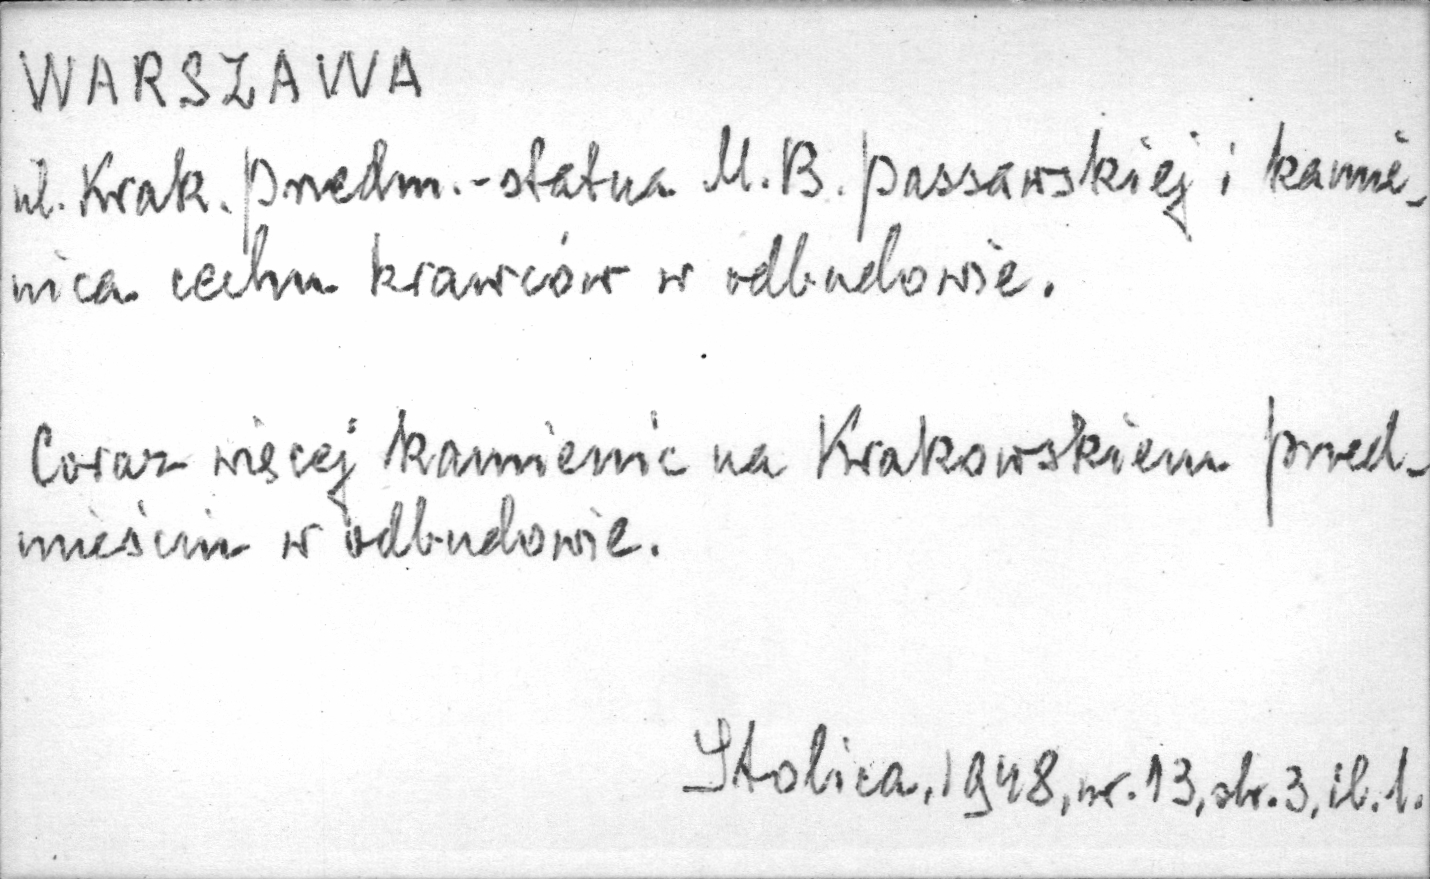 WARSZAWA
ul. Krak. Przedm. - statua M.B. passawskiej i kamie-
nica cechu krawców w odbudowie.
Coraz więcej kamienic na Krakowskiem Przed-
mieściu w odbudowie.
Stolica, 1948, nr. 13, str. 3, il. 1.